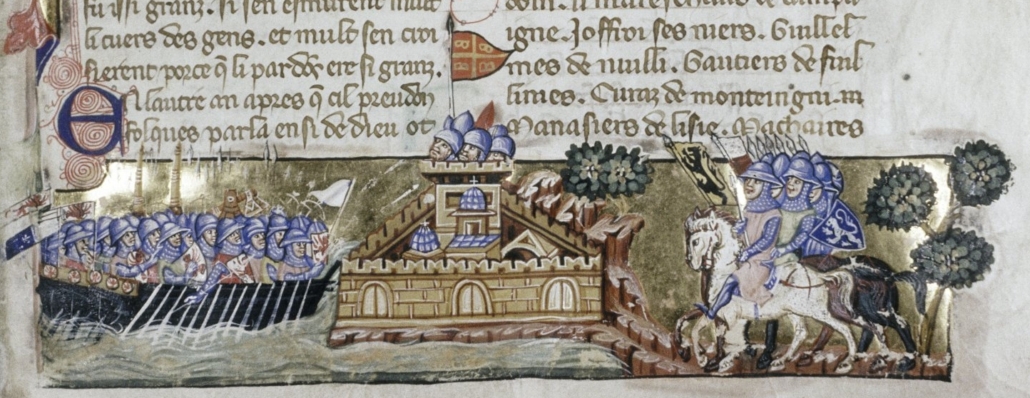 fu issi granz. Si sen esmurent mult
li cuers des gens. et mult sen croi
sierent porce q̃ li pardõs ere si granz.
En lautre an apres q̃ cil preudon
folques parla ensi de dieu ot
li mareschaus de campa
igne. Joffroi ses niers. Guillel
mes de nuilli. Gautiers de fuil
limes. Euraz de monteingni.
Manasiers de lisle. Machaires